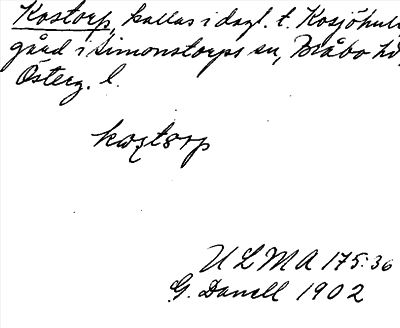 Kostorp, kallas i dagl. t. Kosjöhult
gård i Simonstorps sn, Bråbo hd,
Österg. l.
kostorp
ULMA 175:36
G. Danell 1902